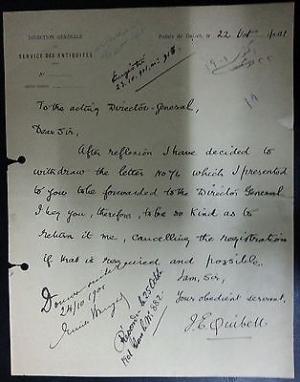 DIRECTION GÉNÉRALE
DU
SERVICE DES ANTIQUITÉS
N°
Palais de Gizeh, le 22 Oct 1901
Enregistré
To the acting Director-General,
Dear Sir,
After reflexion I have decided to
withdraw the letter No 76 which I presented
to you to be forwarded to the Director General
I beg you, therefore, to be so kind as to
return it me, cancelling the registration
if that is required and possible.
I am, Sir,
Your obedient servant,
J. E. Quibell
24/10 1901
Répondu 25 Oct